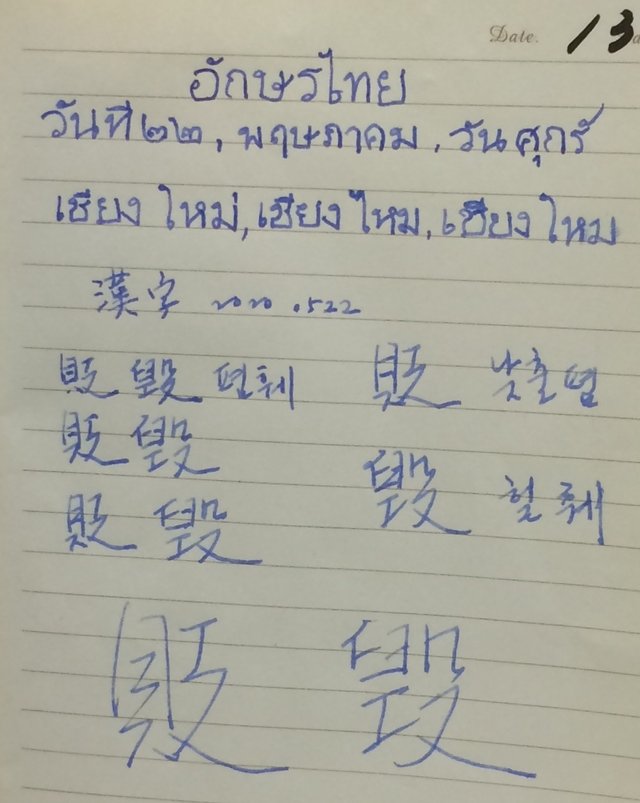 Date. 13
อักษรไทย
วันที่๒๒, พฤษภาคม, วันศุกร์
เชียงใหม่, เชียงไหม, เชียงใหม
漢字 2020.522
貶 毀 폄훼 貶 낮출폄
貶 毀
毀 헐훼
貶 毀
貶 毀